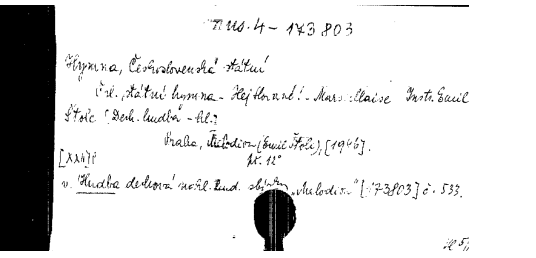 mus. 4 - 173 803
Hymna, Československá státní
Čsl. státní hymna - Hej Slované! - Marseillaise Instr. Emil
Štolc [Dech. hudba - hl.]
Praha, Melodion (Emil Štolc), [1946].
12°
v. Hudba dechová "Melodion" [173803] č. 533.